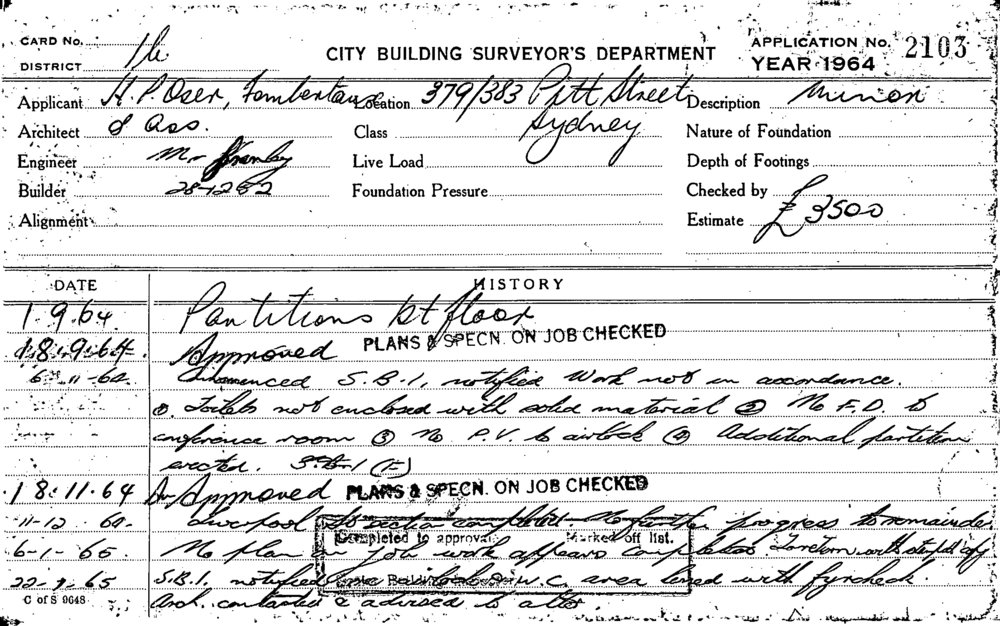 CARD No.
DISTRICT
CITY BUILDING SURVEYOR'S DEPARTMENT
APPLICATION No. 2103
YEAR 1964
Applicant H. P. Oser, Fombertaux Location 379/383 Pitt Street Description Minor
Architect & Ass. Class Sydney Nature of Foundation
Engineer Mr Live Load Depth of Footings
Builder 28-1252 Foundation Pressure Checked by
Alignment Estimate £3500
DATE HISTORY
1.9.64 Partitions 1st floor
18.9.64 Approved PLANS & SPECN. ON JOB CHECKED
6-11-64 Commenced S.B.1, notified Work not in accordance.
①. Toilets not enclosed with solid material ② No F.D. to
conference room ③ No P.V. to airlock ④ Additional partition
erected. S.B.1 (F)
18.11.64 Approved PLANS & SPECN. ON JOB CHECKED
11-12 64 Liverpool St section completed No further progress to remainder
6-1-65 No plan on job work appears completed
Completed to approval Marked off list.
22-9-65 S.B.1. notified W.C. area lined with fyrcheck
C of S 9648 Arch. contacted & advised to alter.